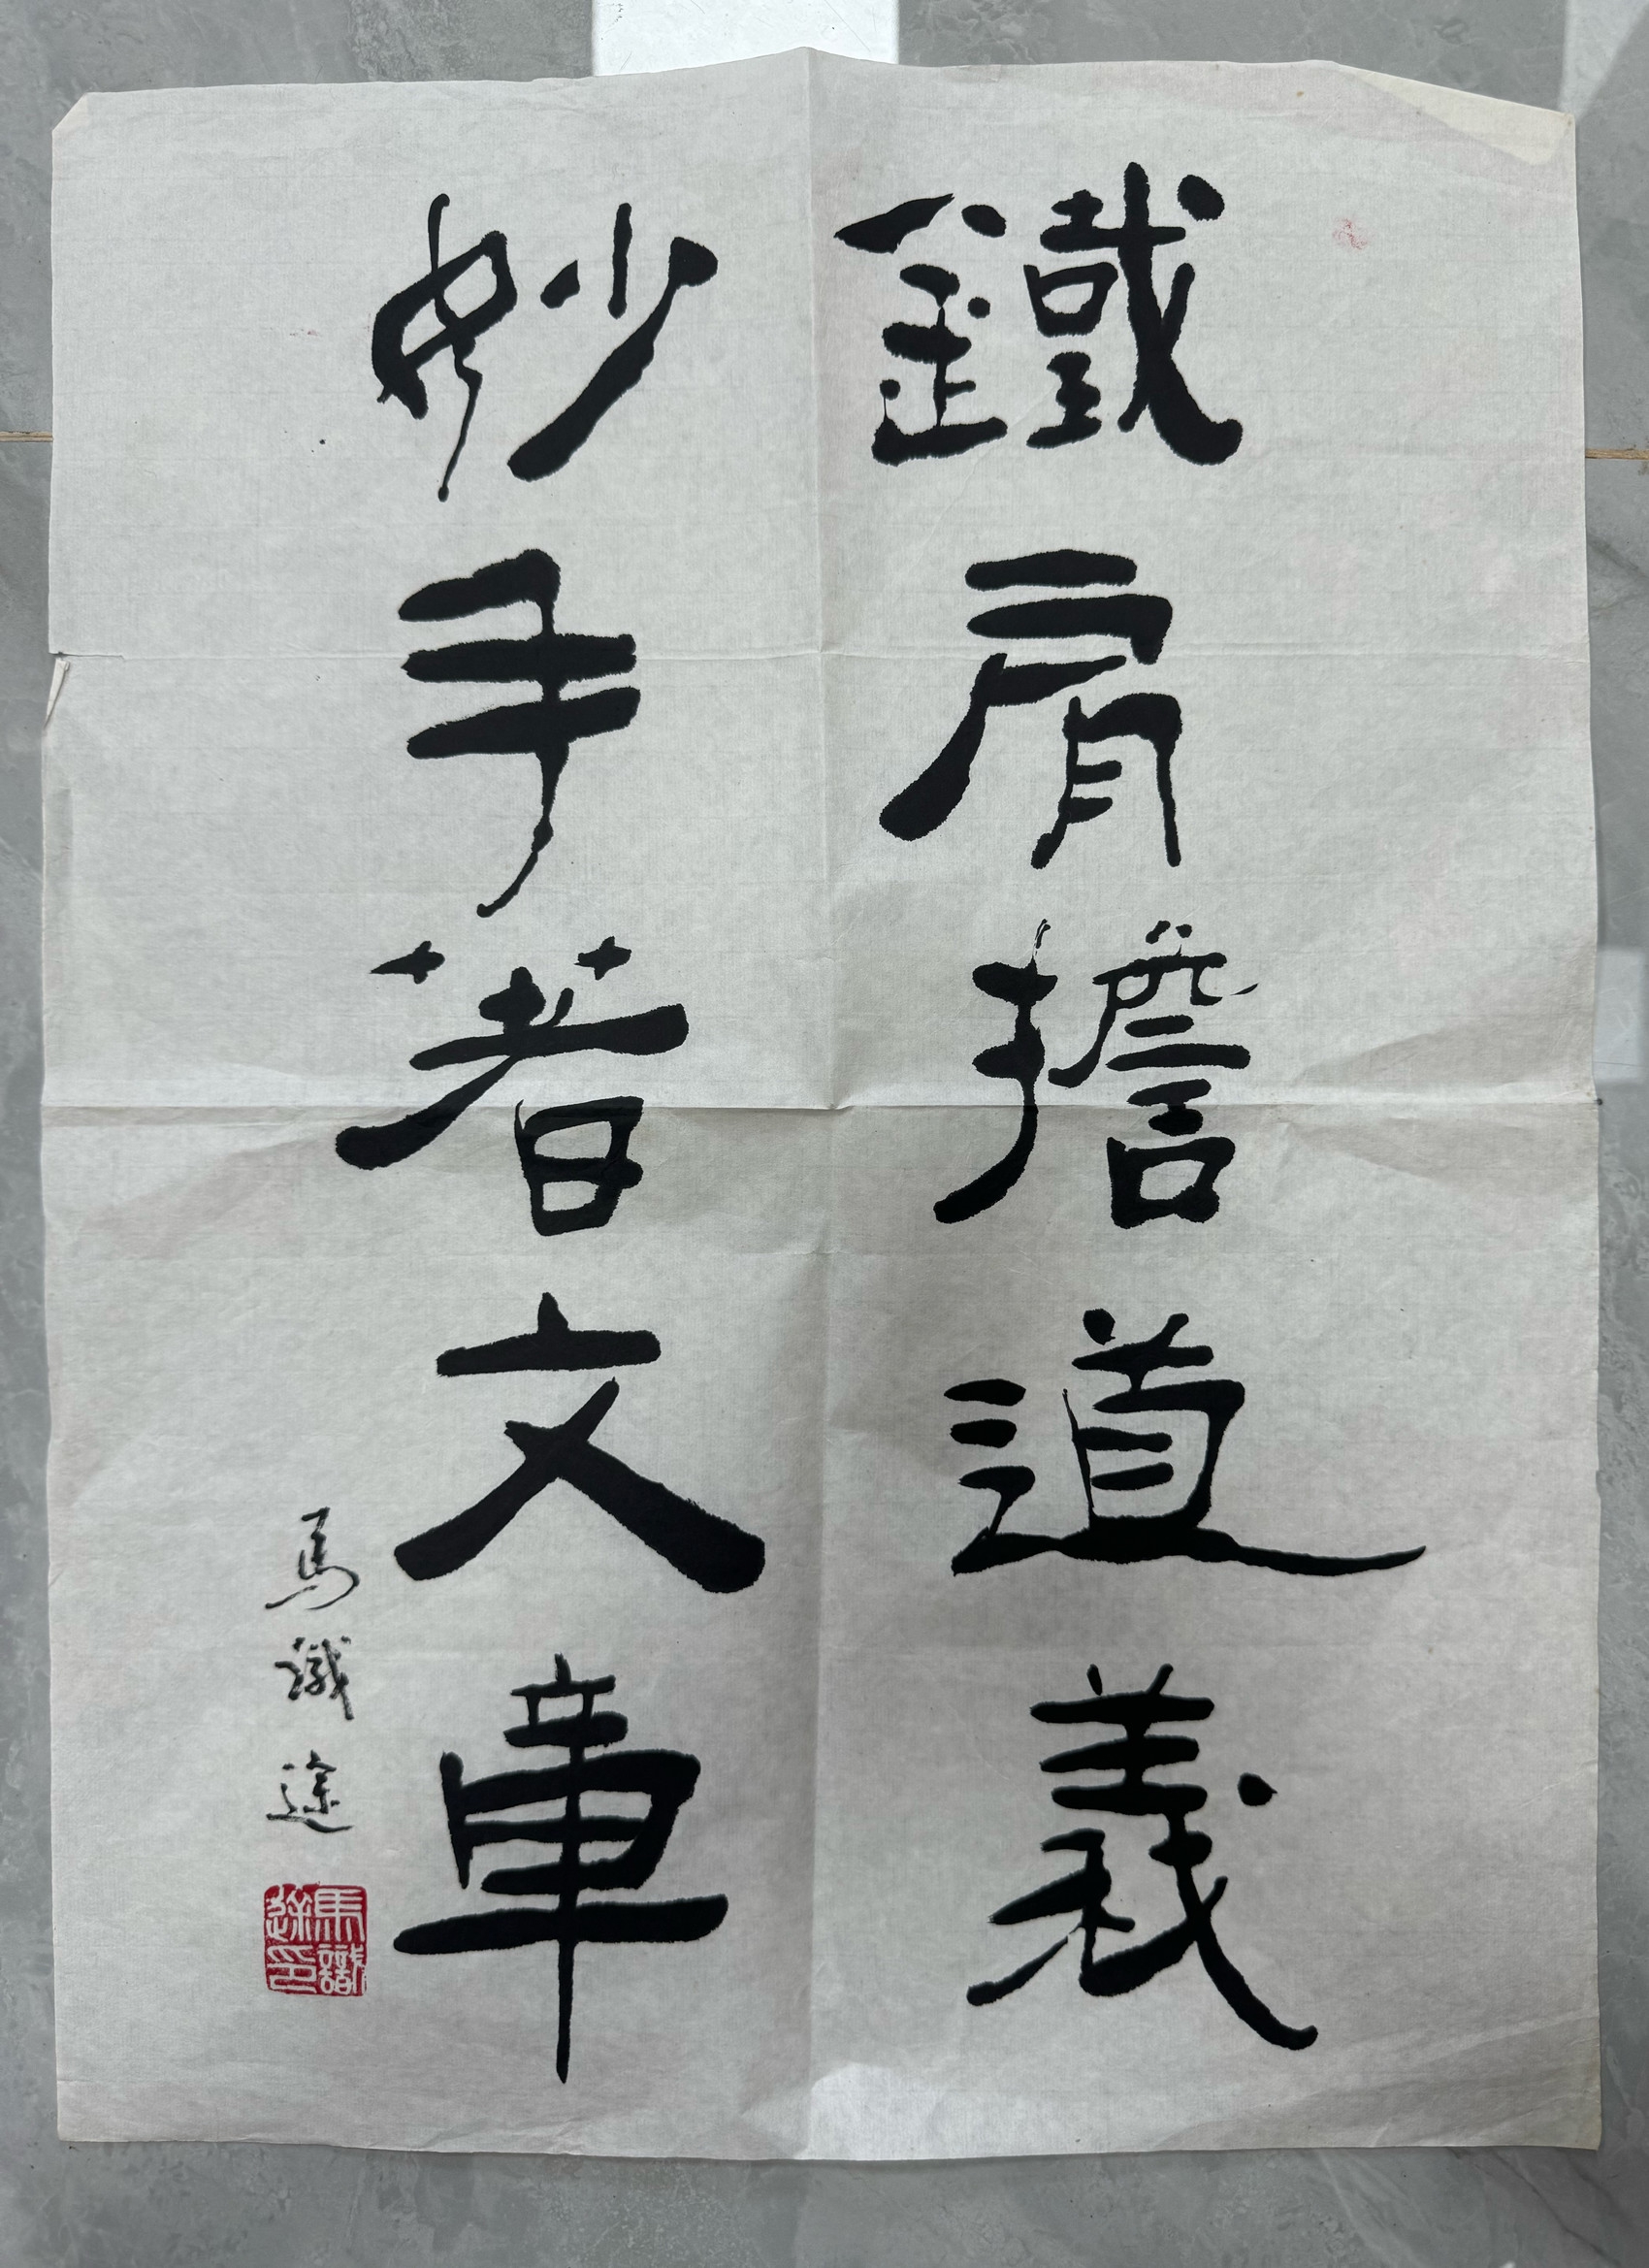 鐵肩擔道義
妙手著文章
馬識途
馬識途印